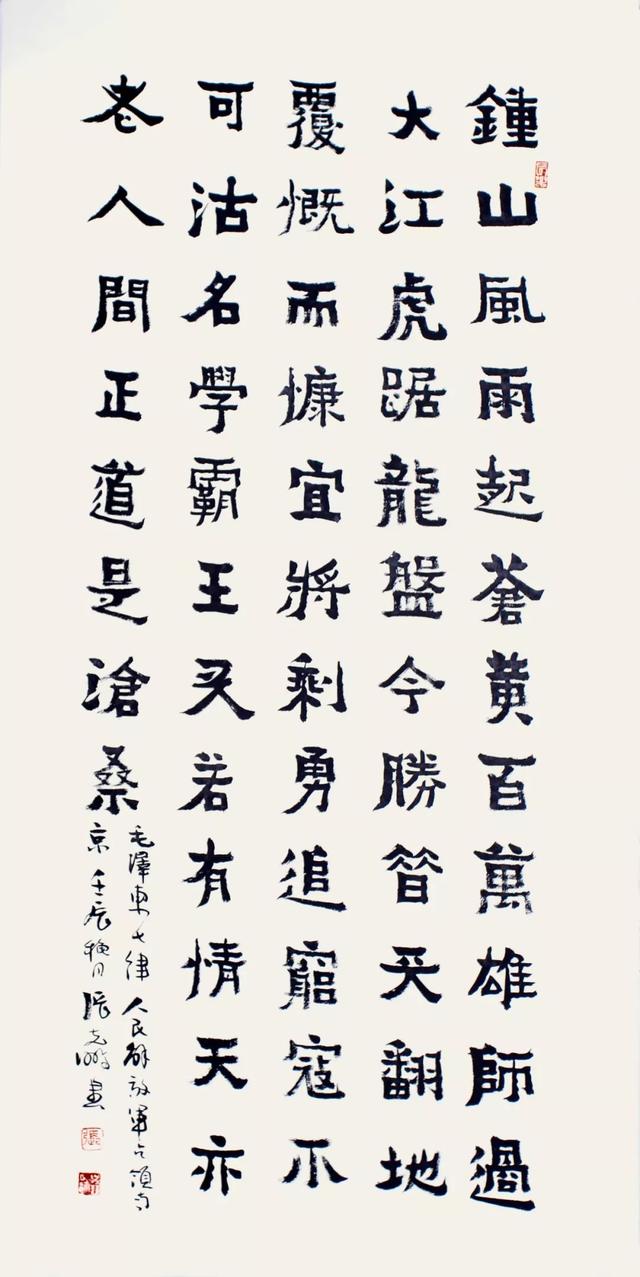 鍾山風雨起蒼黃百萬雄師過
大江虎踞龍盤今勝昔天翻地
覆慨而慷宜將剩勇追窮寇不
可沽名學霸王天若有情天亦
老人間正道是滄桑
毛澤東七律人民解放軍占領南
京壬辰穐月張